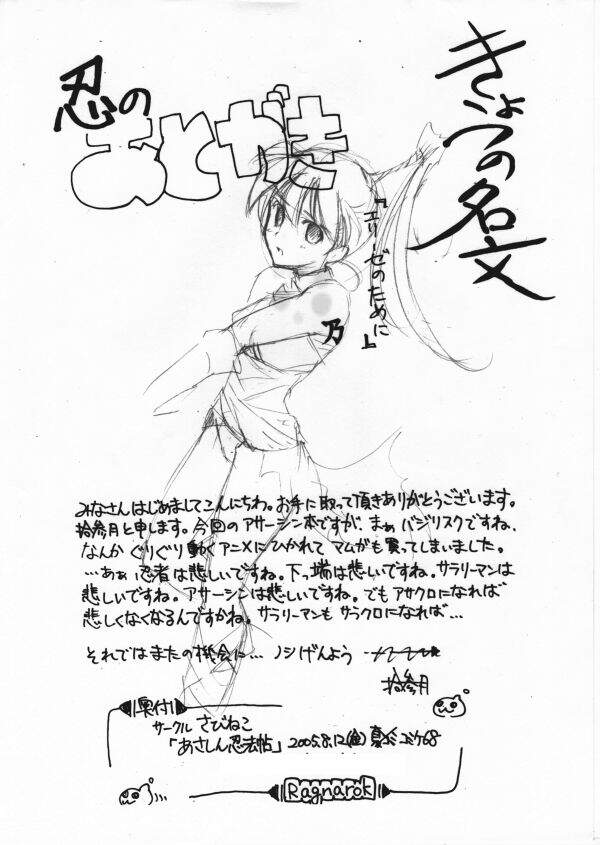 きょうの名文
『エリーゼのために』
忍の
あとがき
乃
みなさんはじめましてこんにちわ。お手に取って頂きありがとうございます。
拾参月と申します。今回のアサシン本ですが、まぁバジリスクですね、
なんかぐりぐり動くアニメにひかれてマムがも買ってしまいました。
…あぁ忍者は悲しいですね。下っ端は悲しいですね。サラリーマンは
悲しいですね。アサーシンは悲しいですね。でもアサクロになれば
悲しくなくなるんですかね。サラリーマンもサラクロになれば…
それではまたの機会に…ノシげんよう
拾参月
奥付
サークル さびねこ
「あさしん忍法帖」 2005.8.12(金) 夏コミ コミケ68
Ragnarok